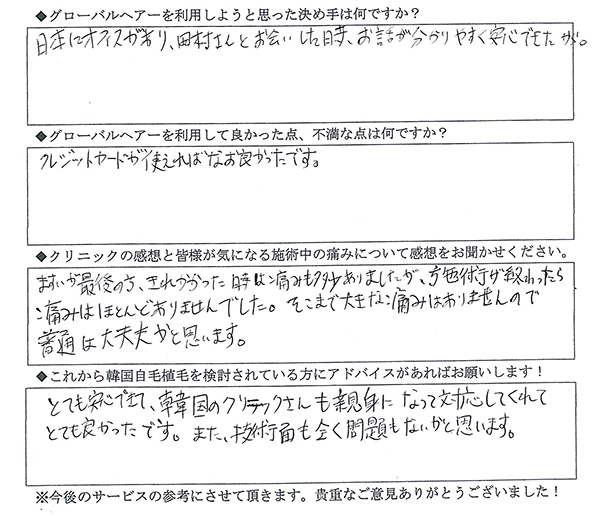 ◆グローバルヘアーを利用しようと思った決め手は何ですか?
日本にオフィスがあり、田村さんとお会いした時、お話が分かりやすく安心できたが。
◆グローバルヘアーを利用して良かった点、不満な点は何ですか?
クレジットカードが使えればなお良かったです。
◆クリニックの感想と皆様が気になる施術中の痛みについて感想をお聞かせください。
ますいが最後の方、きれかかった時は痛みも多少ありましたが、施術が終わったら
痛みはほとんどありませんでした。そこまで大きな痛みはありませんので
普通は大丈夫かと思います。
◆これから韓国自毛植毛を検討されている方にアドバイスがあればお願いします!
とても安心できて、韓国のクリニックさんも親身になって対応してくれて
とても良かったです。また、技術面も全く問題もないかと思います。
※今後のサービスの参考にさせて頂きます。貴重なご意見ありがとうございました!